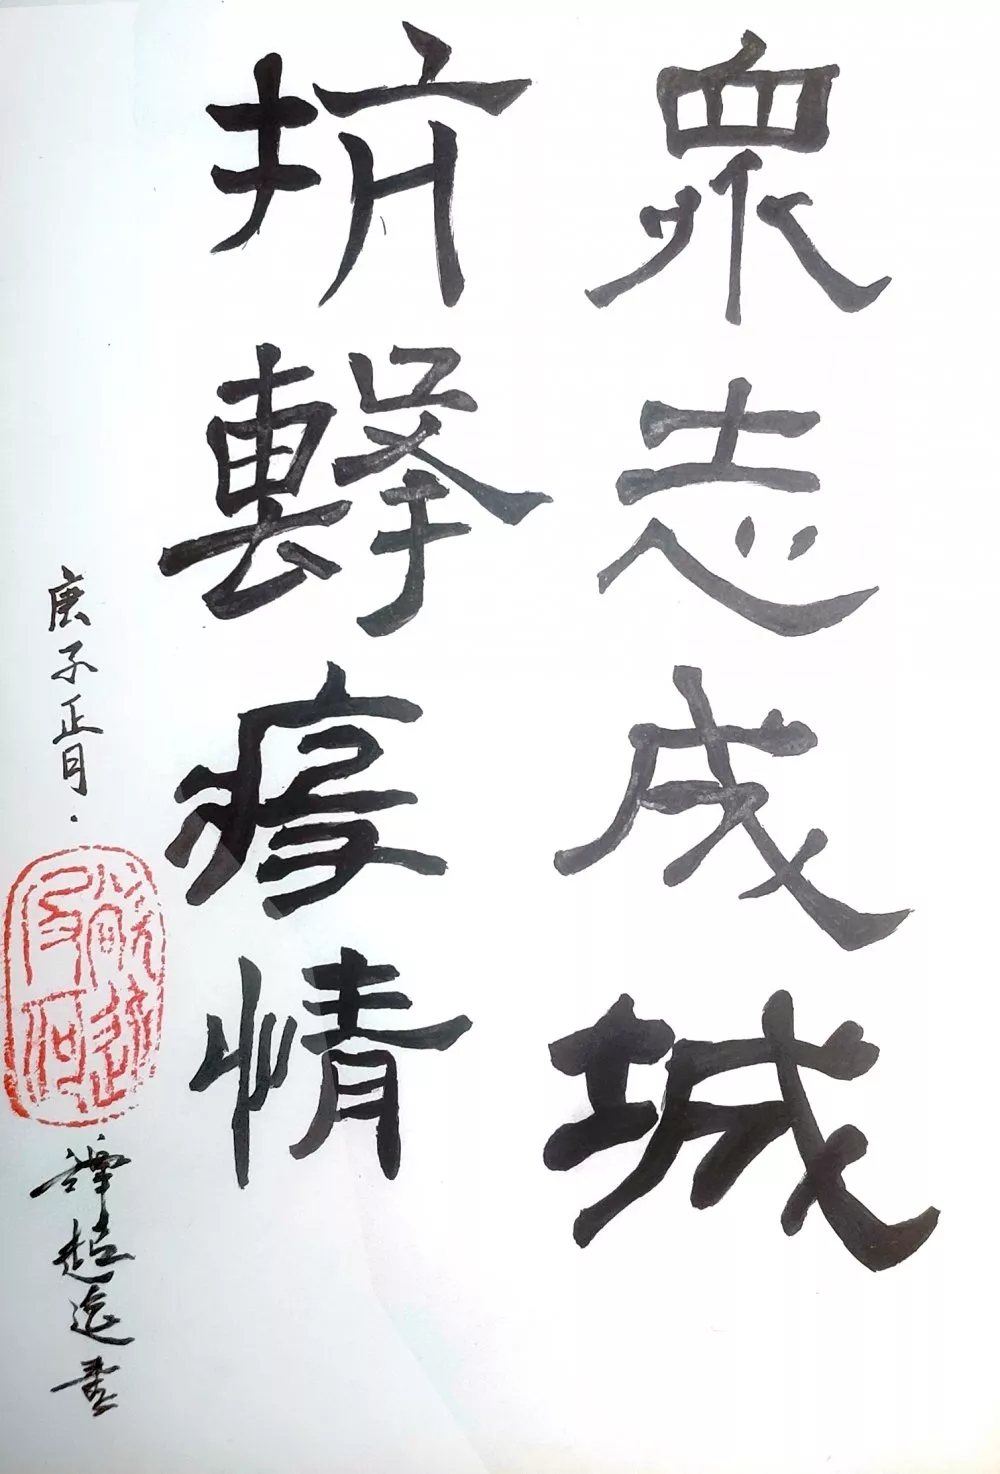 眾志成城
抗擊疫情
庚子正月
譚超逸書